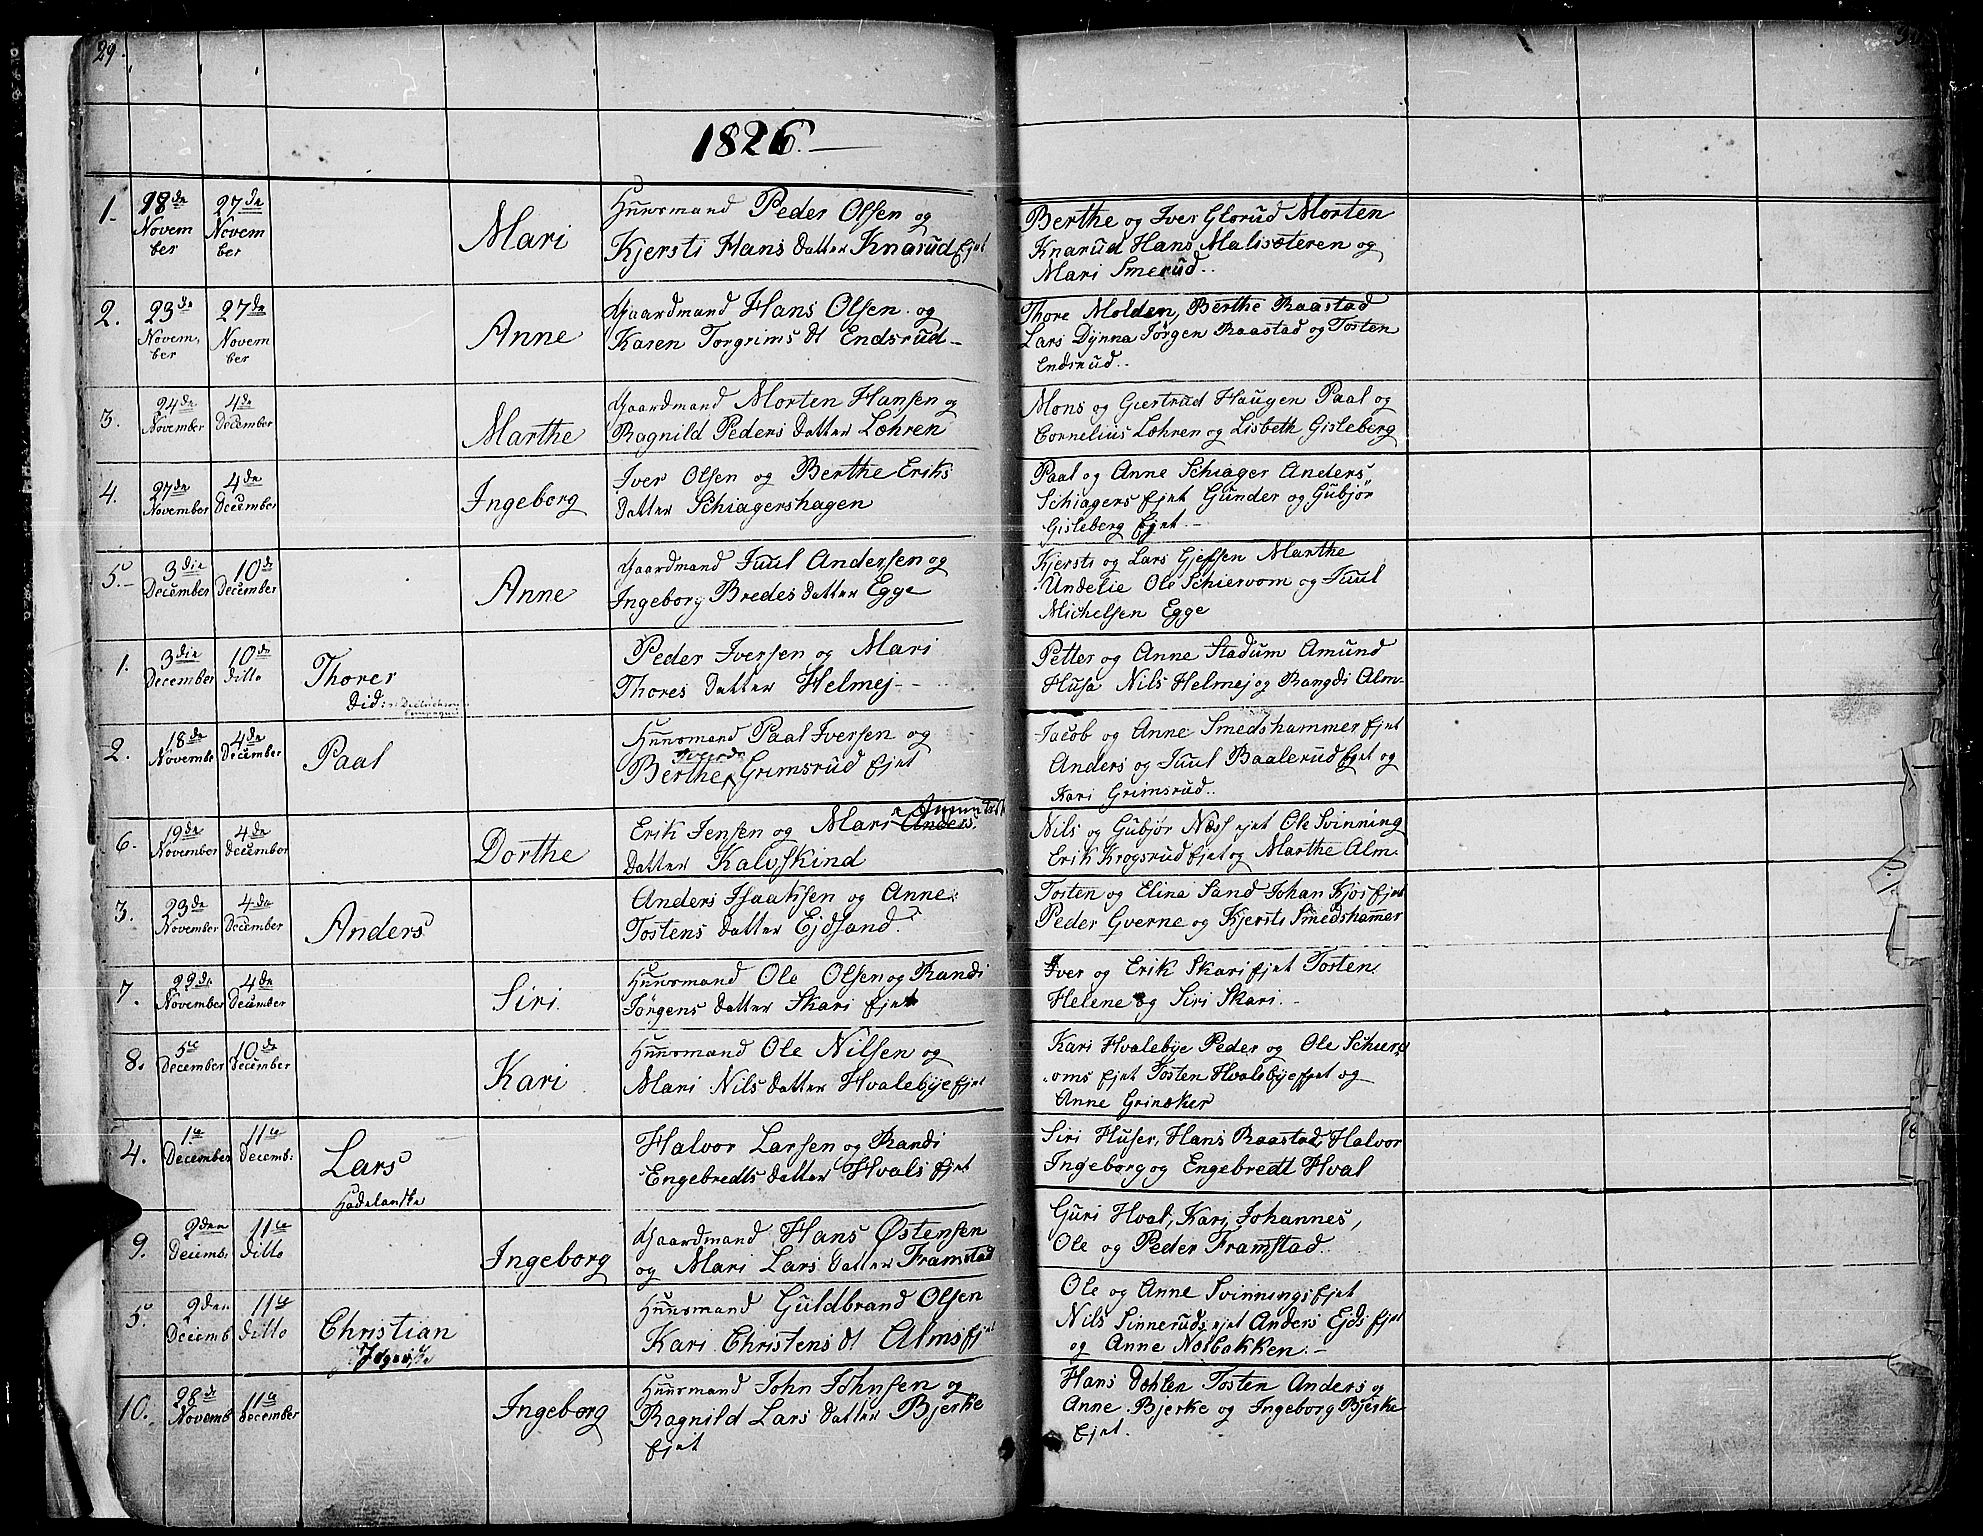 29.
1826.
1. 18de November 27de November Mari Huusmand Peder Olsen og
Kjersti Hans Datter Knarud Ejet
Berthe og Iver Glorud Morten
Knarud Hans Malisæteren og
Mari Smerud..
2. 23de November 27de November Anne Gaardmand Hans Olsen og
Karen Torgrims Dt Endsrud
Thore Molden, Berthe Raastad
Lars Dynna Jørgen Raastad og Tosten
Endsrud..
3. 24de November 4de December Marthe Gaardmand Morten Hansen og
Ragnild Peders Datter Løhren
Mons og Giertrud Haugen Paal og
Cornelius Løhren og Lisbeth Gisleberg
4. 27de November 4de December Ingeborg Iver Olsen og Berthe Eriks
Datter Schiagershagen
Paal og Anne Schiager Anders
Schiagers Ejet Gunder og Gubjør
Gisleberg Ejet.
5. 3die December 10de December Anne Gaardmand Juul Andersen og
Ingeborg Bredes Datter Egge
Kjersti og Lars Gjefsen Marthe
Undelie Ole Schiervom og Juul
Michelsen Egge
1. 3die December 10de ditto Thorer Peder Iversen og Mari
Thores Datter Helmej
Did:
Petter og Anne Stadum Amund
Husa Nils Helmej og Rangdi Alm
2. 18de November 4de December Paal Huusmand Paal Iversen og
Berthe Grimsrud Ejet
Jacob og Anne Smedshammer Ejet
Anders og Juul Baalerud Ejet og
Kari Grimsrud..
6. 19de November 4de December Dorthe Erik Jensen og Mari Anders
Datter Kalvskind
Nils og Gubjør Næss Ejet Ole Svinning
Erik Krogsrud Ejet og Marthe Alm
3. 23de November 4de December Anders Anders Isaaksen og Anne
Tostens Datter Ejdsand.
Tosten og Elina Sand Johan Kjos Ejet
Peder Gverne og Kjersti Smedshammer
7. 29de November 4de December Siri. Huusmand Ole Olsen og Randi
Jørgens Datter Skari Ejet
Iver og Erik Skari Ejet Tosten
Helene og Siri Skari.
8. 5te December 10de December Kari Huusmand Ole Nilsen og
Mari Nils Datter Hvalebye Ejet
Kari Hvalebye Peder og Ole Schierv
oms Ejet Tosten Hvalebye Ejet og
Anne Grinaker
4. 1te December 11te Decemb: Lars Halvor Larsen og Randi
Engebredts Datter Hvals Ejet
Hadelandske
Siri Huser, Hans Raastad, Halvor
Ingeborg og Engebredt Hval
9. 9den Decemb 11te Ditto Ingeborg Gaardmand Hans Østensen
og Mari Lars Datter Framstad
Guri Hval, Kari, Johannes,
Ole og Peder Framstad.
5. 2den Decemb 11te ditto Christian Huusmand Guldbrand Olsen
Kari Christens Dt Alms Ejet
Ole og Anne Svinnings Ejet
Nils Sinneruds Ejet Anders Ejds Ejet
og Anne Nolbakken.
10. 28de Novemb 11te December Ingeborg Huusmand John Johnsen og
Ragnild Lars Datter Bjerke
Ejet
Hans Dæhlen Tosten Anders og
Anne Bjerke og Ingeborg Bjerke
Ejet.